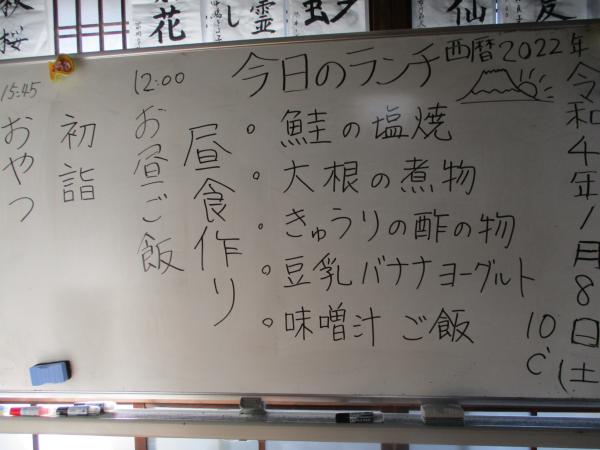 西暦2022年
令和4年1月8日(土
10℃
今日のランチ
昼食作り
。鮭の塩焼
。大根の煮物
。きゅうりの酢の物
。豆乳バナナヨーグルト
。味噌汁 ご飯
12:00
お昼ご飯
初詣
15:45
おやつ
秋桜
花
し
霊
虫
夕
仙